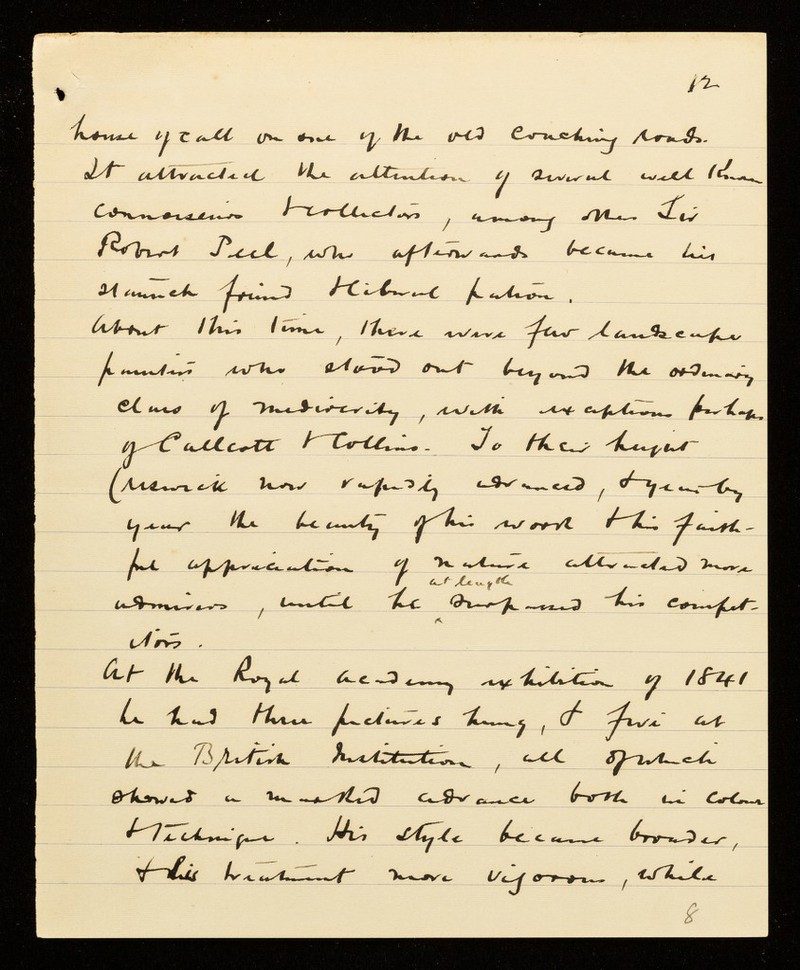 12
house of call on one of the old coaching roads.
It attracted the attention of several well known
connoisseurs & collectors, among other Sir
Robert Peel, who afterwards became his
staunch friend & liberal patron.
About this time, there were few landscape
painters who stood out beyond the ordinary
class of mediocrity, with exceptions perhaps
of Callcott & Collins. To their height
Creswick now rapidly advanced, & year by
year the beauty of his work & his faith-
ful appreciation of nature attracted more
at length
admirers, until he surpassed his compet-
itors.
At the Royal Academy exhibition of 1841
he had three pictures hung, & five at
the British Institution, all of which
showed a marked advance both in colour
& technique. His style became broader,
& his treatment more vigorous, while
8